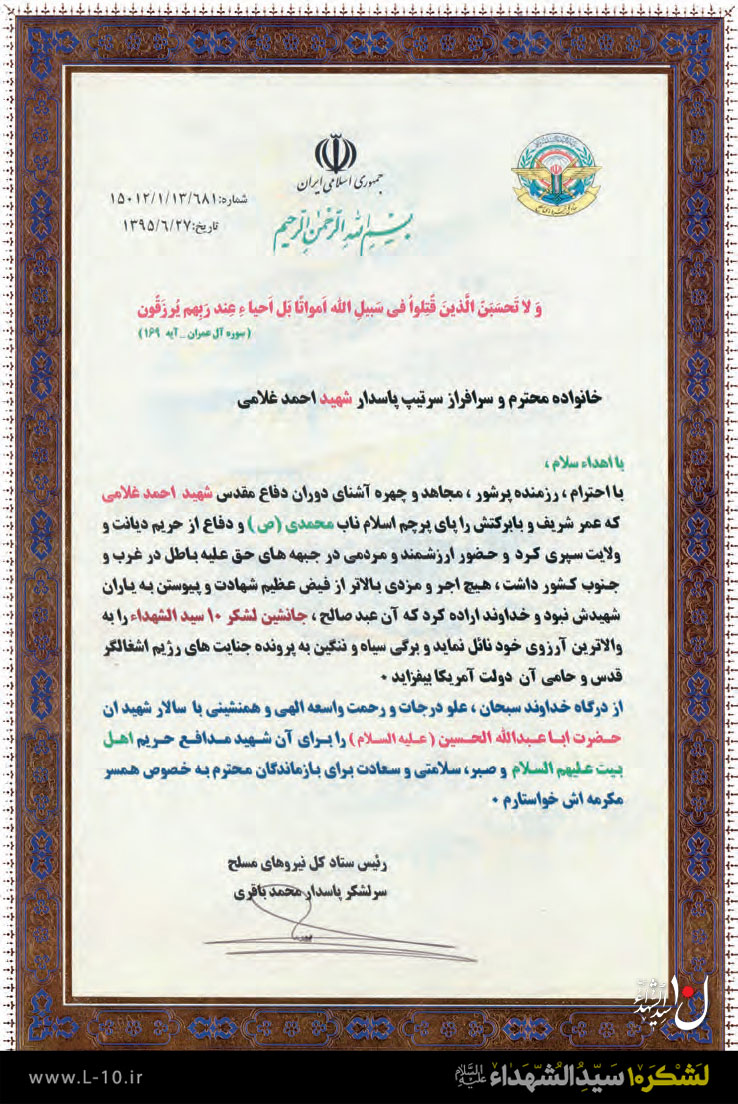 جمهوری اسلامی ایران
بسم الله الرحمن الرحیم
شماره: ۱۵۰۱۲/۱/۱۳/۶۸۱
تاریخ: ۱۳۹۵/۶/۲۷
وَ لا تَحسَبَنَّ الَّذینَ قُتِلواْ فی سَبیلِ الله اَمواتًا بَل اَحیا ءٍ عِند رَبِهم یُرزَقُون
(سوره آل عمران _ آیه ۱۶۹)
خانواده محترم و سرافراز سرتیپ پاسدار شهید احمد غلامی
با اهداء سلام ،
با احترام ، رزمنده پرشور ، مجاهد و چهره آشنای دوران دفاع مقدس شهید احمد غلامی
که عمر شریف و بابرکتش را پای پرچم اسلام ناب محمدی (ص) و دفاع از حریم دیانت و
ولایت سپری کرد و حضور ارزشمند و مردمی در جبهه های حق علیه باطل در غرب و
جنوب کشور داشت ، هیچ اجر و مزدی بالاتر از فیض عظیم شهادت و پیوستن به یاران
شهیدش نبود و خداوند اراده کرد که آن عبد صالح ، جانشین لشکر ۱۰ سید الشهداء را به
والاترین آرزوی خود نائل نماید و برگی سیاه و ننگین به پرونده جنایت های رژیم اشغالگر
قدس و حامی آن دولت آمریکا بیفزاید .
از درگاه خداوند سبحان ، علو درجات و رحمت واسعه الهی و همنشینی با سالار شهیدان
حضرت ابا عبدالله الحسین (علیه السلام) را برای آن شهید مدافع حریم اهل
بیت علیهم السلام و صبر، سلامتی و سعادت برای بازماندگان محترم به خصوص همسر
مکرمه اش خواستارم .
رئیس ستاد کل نیروهای مسلح
سرلشکر پاسدار محمد باقری
ل۱۰ سیدالشهداء
لشکر۱۰ سَیِّدُالشُّهَداء عَلَیهِ السَّلام
www.L-10.ir